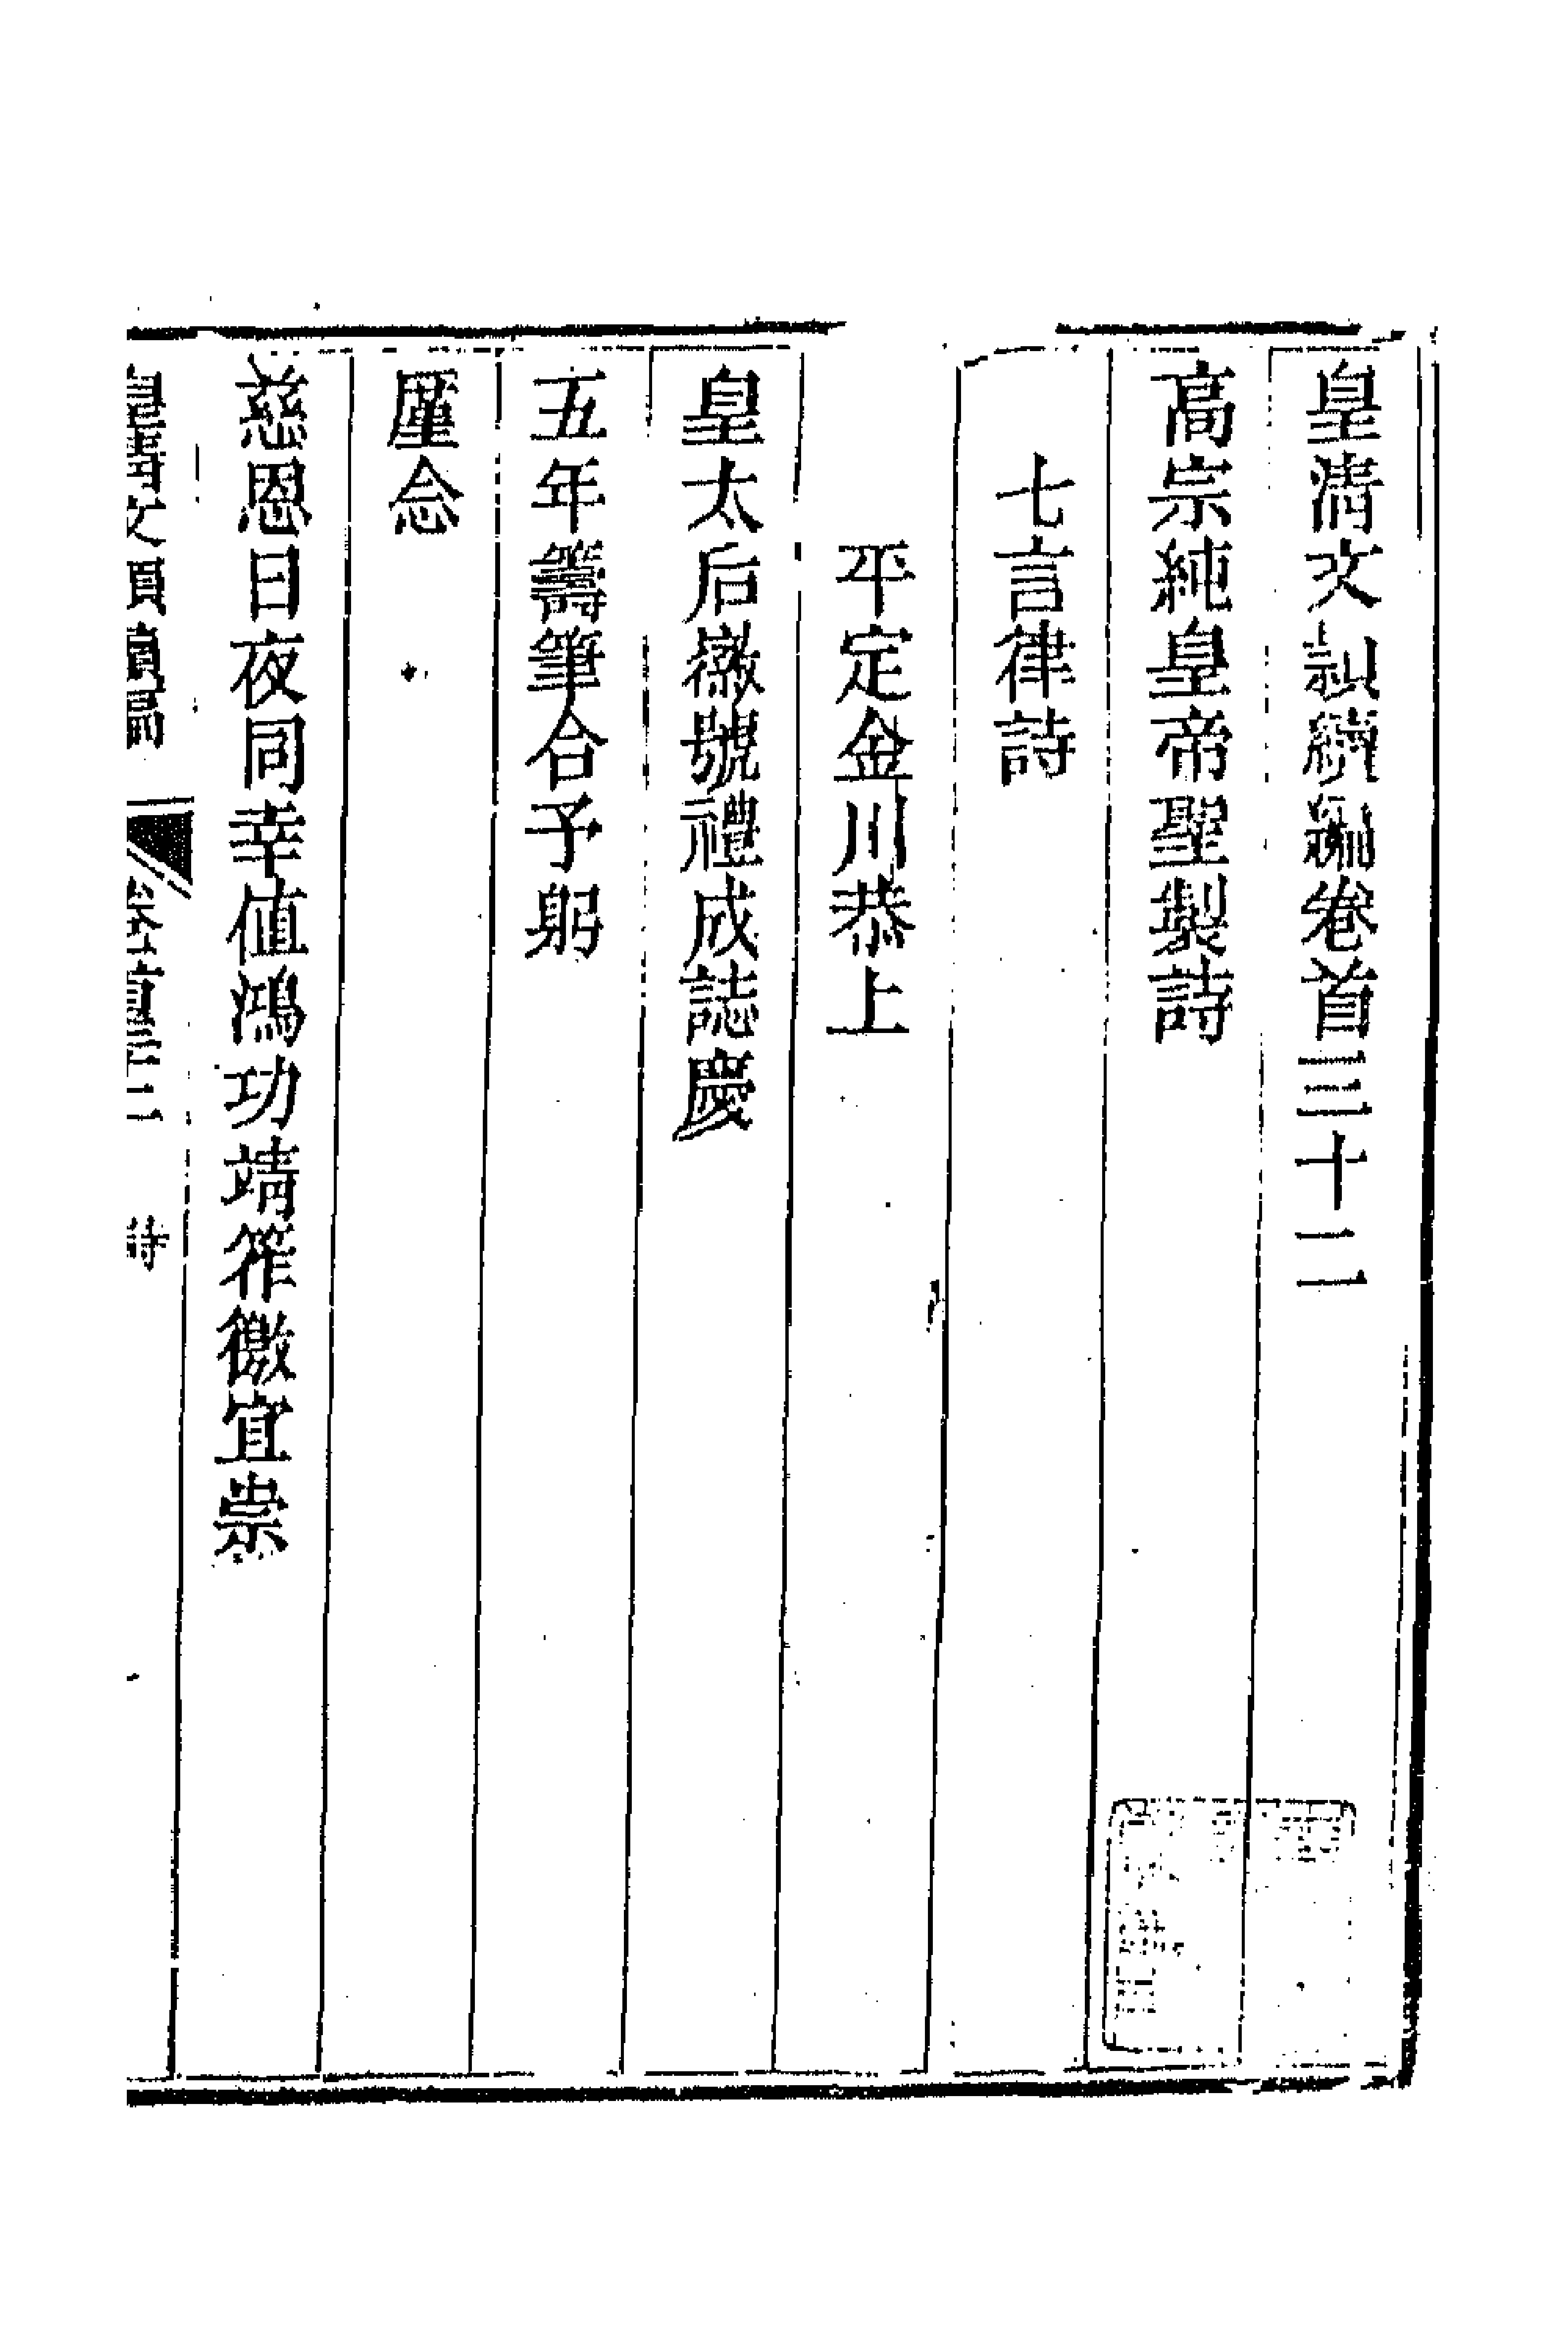 皇清文頴續編卷首三十二
高宗純皇帝聖製詩
七言律詩
平定金川恭上
皇太后徽號禮成誌慶
五年籌筆合予躬
厪念
慈恩日夜同幸値鴻功靖筰徼宜崇
皇清文頴續編 卷首三十二 詩